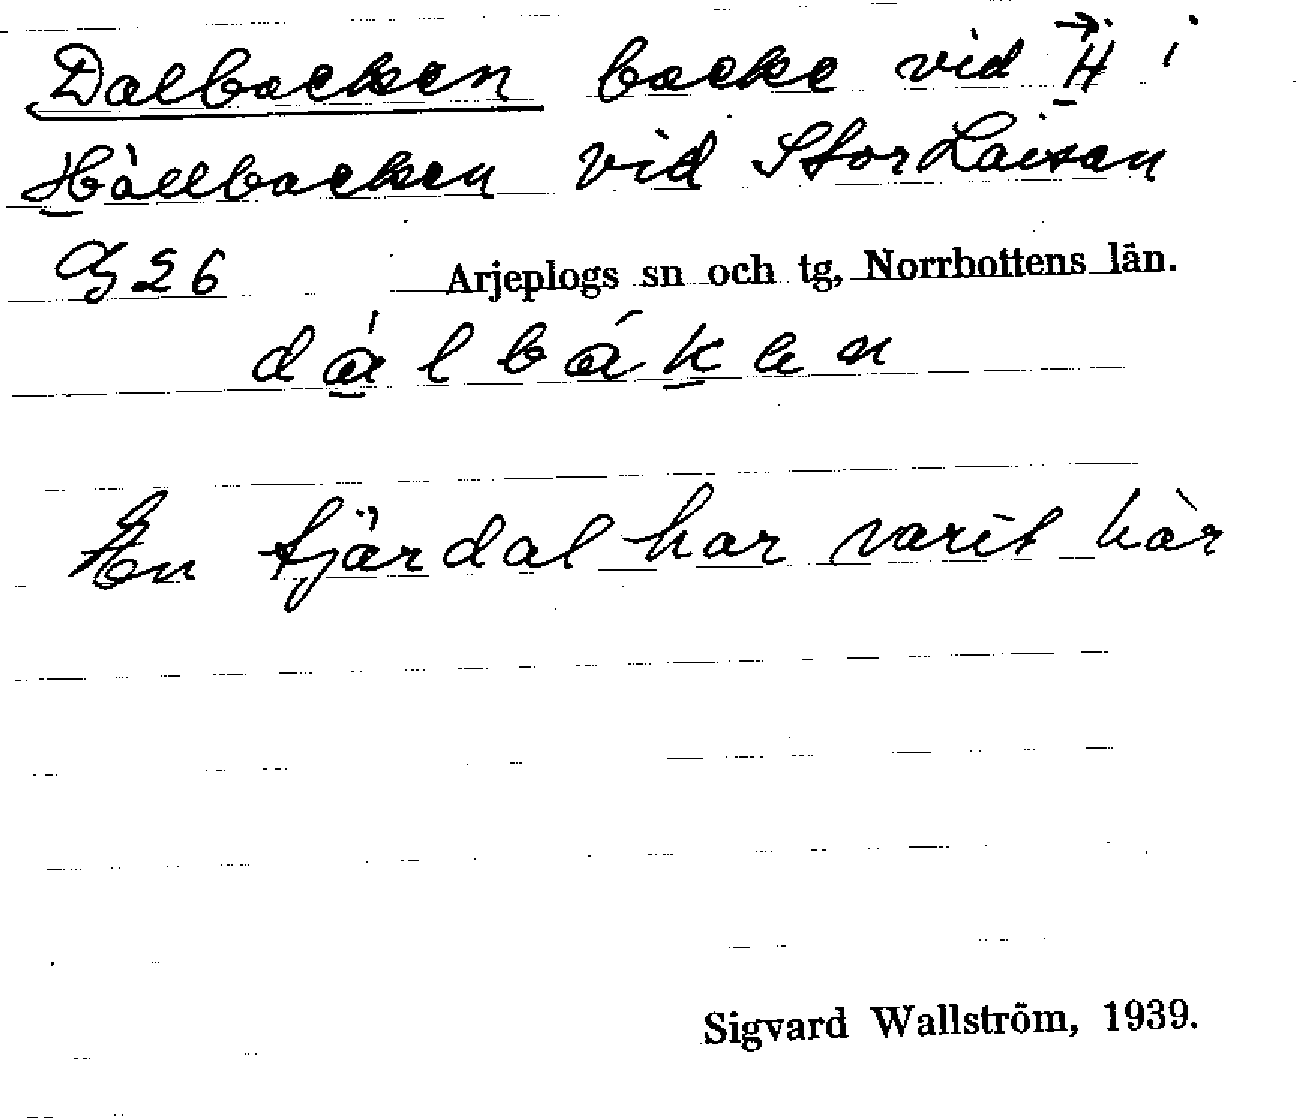 Dalbacken backe vid H i
Hällbacken vid Stor Laisan
G26 Arjeplogs sn och tg, Norrbottens län.
dálbáken
En tjärdal har varit här
Sigvard Wallström, 1939.